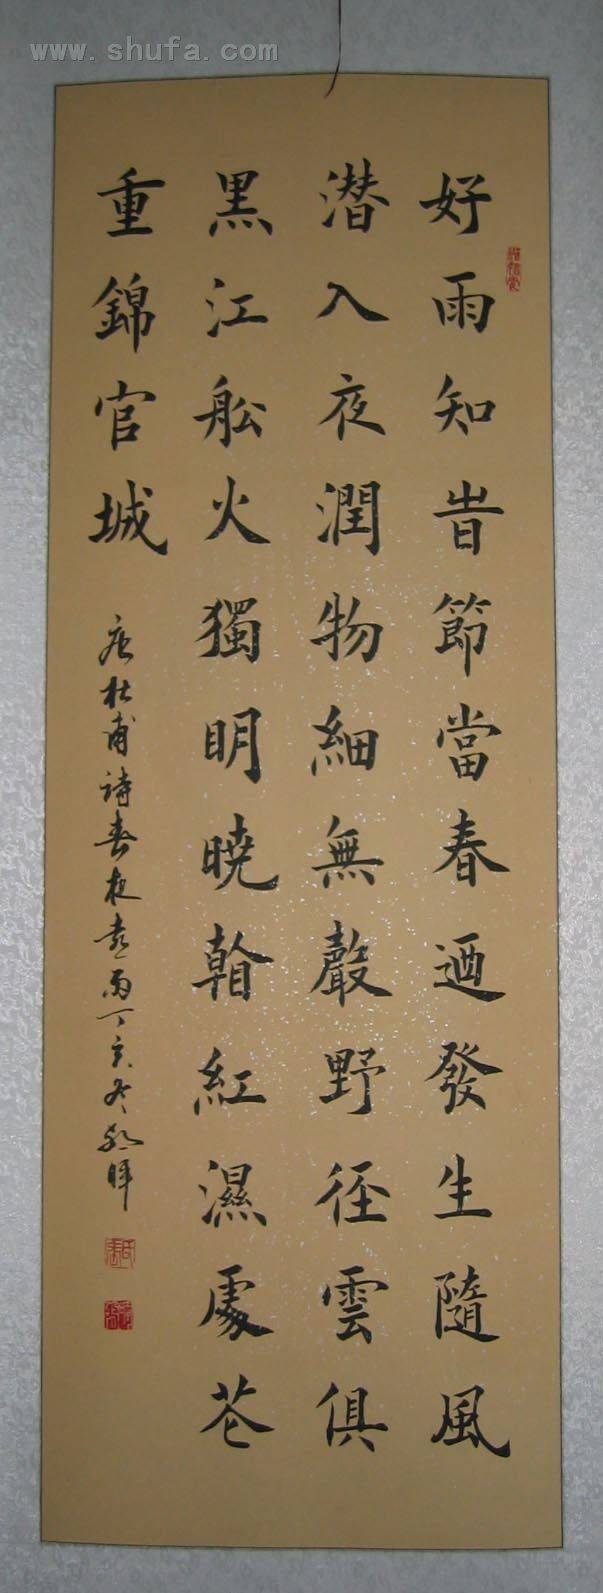 www.shufa.com
好雨知旹節當春迺發生隨風
潛入夜潤物細無聲野徑雲俱
黒江舩火獨明曉看紅濕處花
重錦官城
唐杜甫詩春夜喜雨丁亥冬